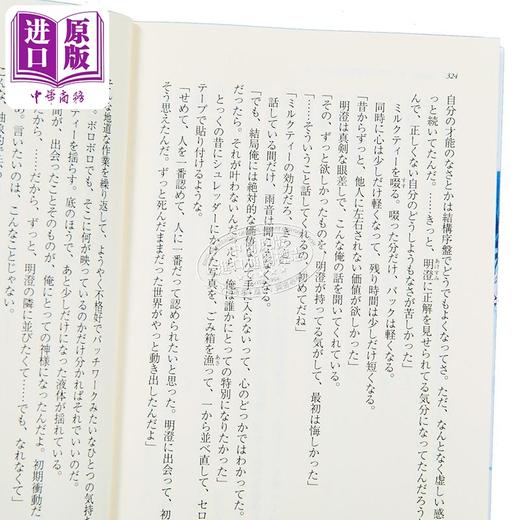 進口原版
中華商務
324
自分の才能のなさとかは結構序盤でどうでもよくなってさ。ただ、なんとなく虚しい感
っと続いてたんだ。……きっと、明澄に正解を見せられてる気分になってたんだろう
んで、正しくない自分のどうしようもなさが苦しかった」
ミルクティーを啜る。啜った分だけ、パックは軽くなる。
同時に心は少しだけ軽くなって、残り時間は少しだけ短くなる。
「昔からずっと、他人に左右されない価値が欲しかった」
明澄は真剣な眼差しで、こんな俺の話を聞いてくれている。
「その、ずっと欲しかったものを、明澄が持ってる気がして、最初は悔しかった」
「……そういうこと話してくれるの、初めてだね」
「ミルクティーの効力だろ、きっと」
話している間だけ、雨音は聞こえなくなる。
「でも、結局俺には絶対的な価値なんて手に入らないって、心のどっかではわかってた。
だったら。それが叶わないんだったら、俺は誰かにとっての特別になりたかった」
とっくの昔にシュレッダーにかけた写真を、ごみ箱を漁って、一から並べ直して、セロ
テープで貼り付けるような。
「せめて、人を一番認めて、人に一番だって認められたいと思った。明澄に出会って、初
そう思えたんだ。ずっと死んだままだった世界がやっと動き出したんだよ」
な地道な作業を繰り返して、ようやく不格好でパッチワークみたいなひとつの気持ち
。ボロボロでも、そこに何が映っているのかだけ分かればそれでいいのだ。
ティーを揺らす。底のほうで、あと少しだけになった液体が揺れている。
間が、出会ったことそのものが、俺にとっての神様になったんだよ。初期衝動だ
だから、……だから、ずっと、明澄の隣に並びたくて……でも、なれなくて」
。言いたいのは、こんなことじゃない。